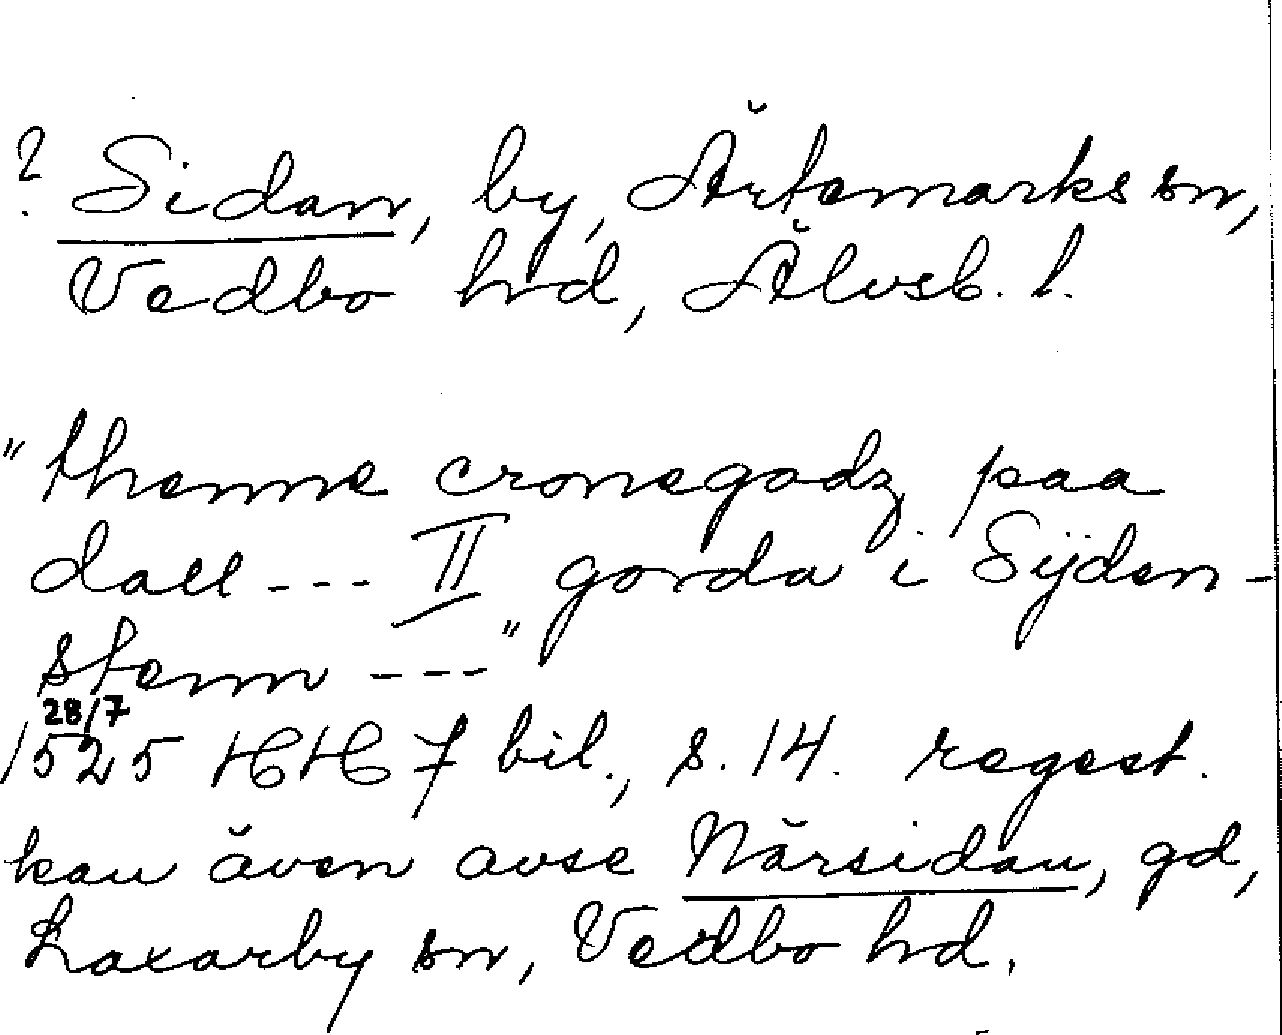 ? Sidan, by, Ärtemarks sn,
Vedbo hd, Älvsb. l.
"thenne cronegodz paa
dall --- II gorda i Sijden-
stenn ---"
28/7
1525 HH 7 bil., s. 14. regest.
kan även avse Närsidan, gd,
Laxarby sn, Vedbo hd.